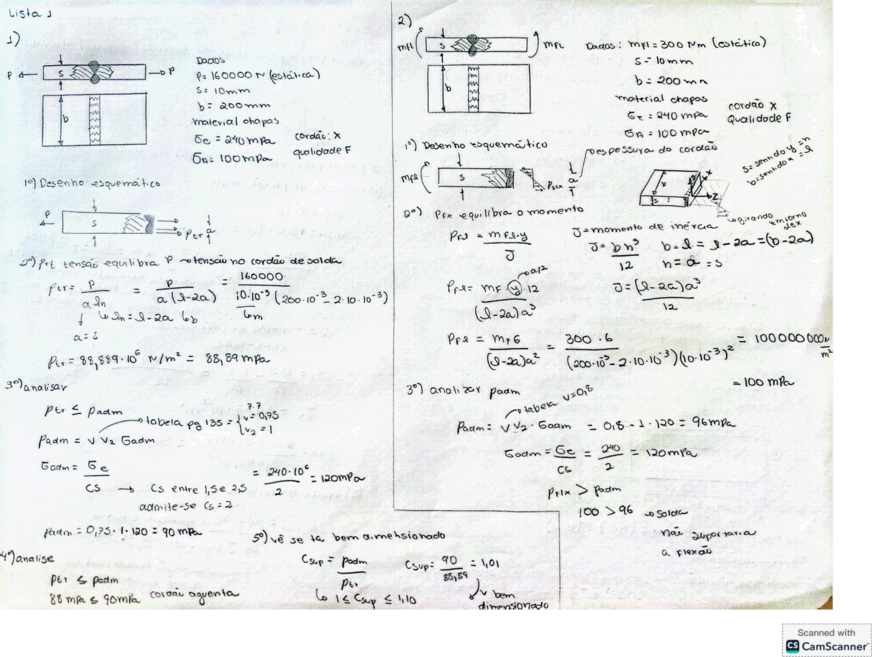 Lista 1
1)
P
S
P
b
Dados
P = 160000 N (estática)
S = 10mm
b = 200mm
material chapas
σe = 240 MPa
σA = 100 MPa
cordão: X
qualidade F
1º) Desenho esquemático
P
S
Ptr
a
2º) Ptr tensão equilibra P → tensão no cordão de solda
Ptr = P / a ln = P / a(l-2a) = 160000 / 10·10⁻³ (200·10⁻³ - 2·10·10⁻³)
↳ ln = l-2a
↳ b
↳ m
a = s
Ptr = 88,889·10⁶ N/m² = 88,89 MPa
3º) analisar
Ptr ≤ Padm
tabela pg 135 = { v = 0,75
v2 = 1
7.7
Padm = v v2 σadm
σadm = σe / CS = 240·10⁶ / 2 = 120 MPa
→ CS entre 1,5 e 2,5
admite-se CS = 2
Padm = 0,75 · 1 · 120 = 90 MPa
4º) analise
Ptr ≤ Padm
88 MPa ≤ 90 MPa cordão aguenta
5º) vê se ta bem dimensionado
Csup = Padm / Ptr
Csup = 90 / 85,89 = 1,01
↳ 1 ≤ Csup ≤ 1,10
bem dimensionado
2)
MFL
S
MFL
b
Dados: MFL = 300 Nm (estático)
S = 10mm
b = 200mm
material chapas
σe = 240 MPa
σA = 100 MPa
cordão X
Qualidade F
1º) Desenho esquemático
Despessura do cordão
MFL
S
PFLX
a
S = sentido y = h
b = sentido x = l
2º) PFLX equilibra o momento
girando em torno de x
PFL = MFL·y / J
J = momento de inércia
J = bh³ / 12
b = l = l-2a = (b-2a)
h = a = s
a/2
PFL = MF·y·12 / (l-2a)a³
J = (l-2a)a³ / 12
PFL = MF6 / (l-2a)a² = 300·6 / (200·10⁻³ - 2·10·10⁻³)(10·10⁻³)² = 100000000 N/m²
= 100 MPa
3º) analizar Padm
tabela v=0,8
Padm = v v2 · σadm = 0,8 · 1 · 120 = 96 MPa
σadm = σe / CS = 240 / 2 = 120 MPa
Pflx > Padm
100 > 96 → solda
não suportaria
a flexão
Scanned with
CS CamScanner